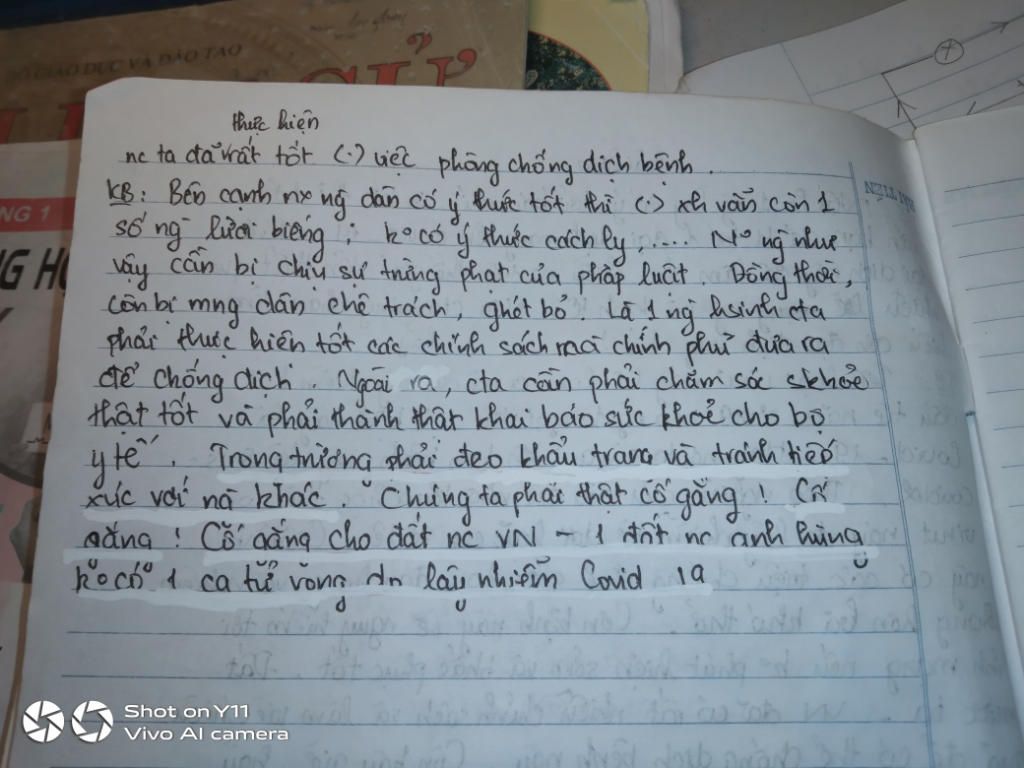 BỘ GIÁO DỤC VÀ ĐÀO TẠO
SỬ
NG 1
G HỌ
thực hiện
nc ta đã rất tốt (.) việc phòng chống dịch bệnh.
KB: Bên cạnh nx ng dân có ý thức tốt thì (.) xh vẫn còn 1
số ng lười biếng ; k° có ý thức cách ly, .... N° ng như
vậy cần bị chịu sự trừng phạt của pháp luật. Đồng thời,
còn bị mng dân chê trách, ghét bỏ. Là 1 ng hsinh cta
phải thực hiện tốt các chính sách mà chính phủ đưa ra
để chống dịch. Ngoài ra, cta cần phải chăm sóc skhoẻ
thật tốt và phải thành thật khai báo sức khoẻ cho bộ
y tế. Trong trường phải đeo khẩu trang và tránh tiếp
xúc với ng khác. "Chúng ta phải thật cố gắng! Cố
gắng! Cố gắng cho đất nc VN - 1 đất nc anh hùng
k° có 1 ca tử vong do lây nhiễm Covid 19
Shot on Y11
Vivo AI camera